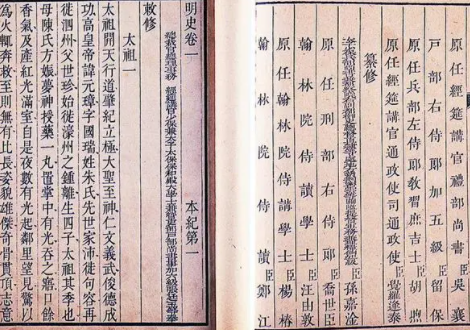 原任經筵講官禮部尚書臣吳襄
戶部右侍郎加五級臣留保
原任兵部左侍郎教習庶吉士臣胡煦
原任經筵講官通政使司通政使臣覺羅逢泰
纂修
臣孫嘉淦
原任刑部右侍郎臣喬世臣
翰林院侍讀學士臣汪由敦
原任翰林院侍講學士臣楊椿
翰林院侍讀臣鄭江
明史卷一 本紀第一
敕修
太祖一
太祖開天行道肇紀立極大聖至神仁文義武俊德成
功高皇帝諱元璋字國瑞姓朱氏先世家沛徙句容再
徙泗州父世珍始徙濠州之鍾離生四子太祖其季也
母陳氏方娠夢神授藥一丸置掌中有光吞之寤口餘
香氣及產紅光滿室自是夜數有光起鄰里望見驚以
為火輒奔救至則無有比長姿貌雄傑奇骨貫頂志意